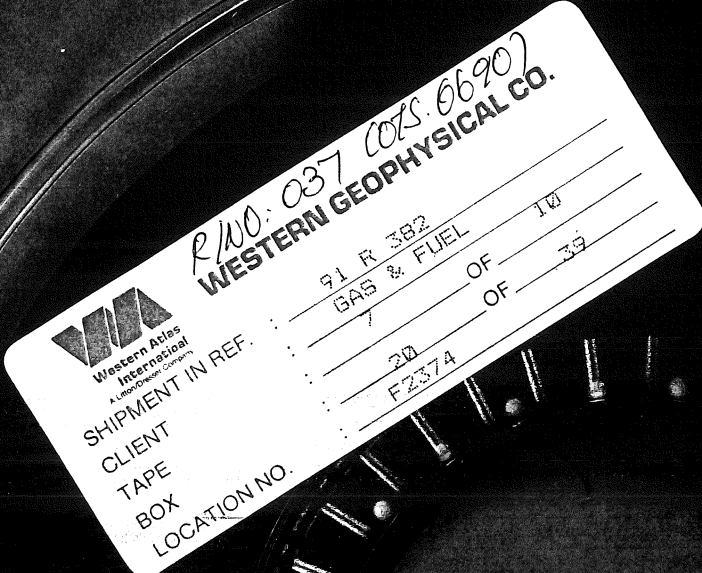 R/NO: 037 COTS. 06907
WESTERN GEOPHYSICAL CO.
Western Atlas
International
A Litton/Dresser Company
SHIPMENT IN REF. : 91 R 382
CLIENT : GAS & FUEL
TAPE : 7 OF 10
BOX : 20 OF 39
LOCATION NO. : FZ374